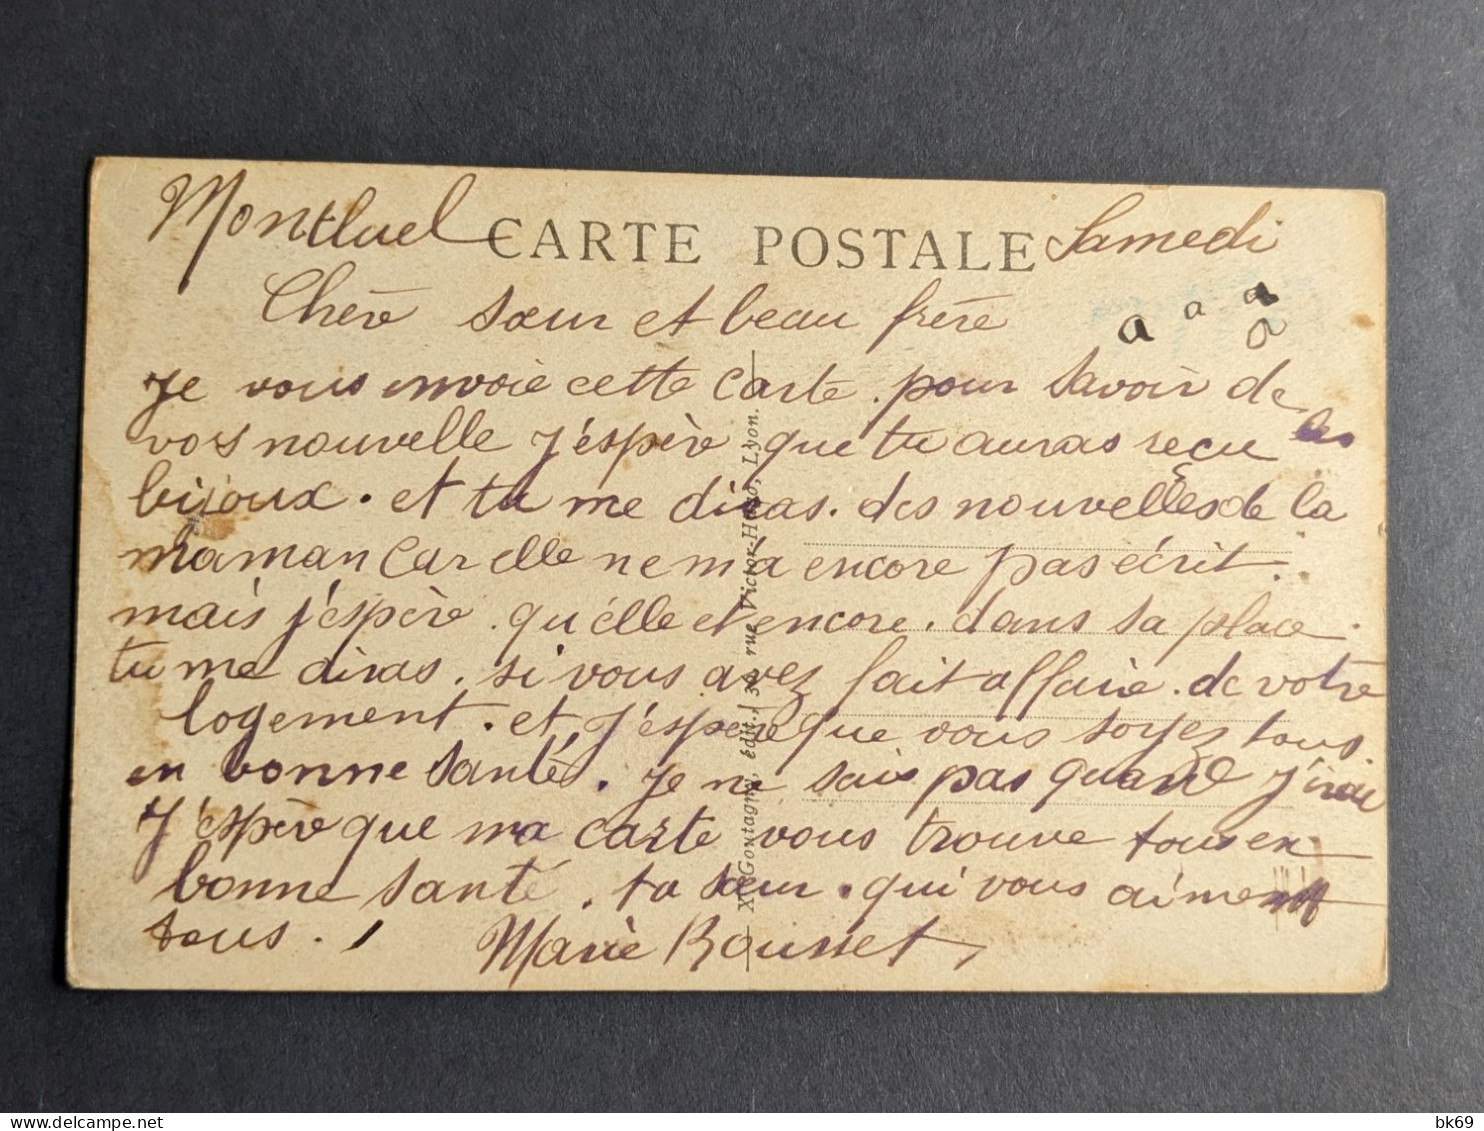 Montluel CARTE POSTALE Samedi
Chèr sœur et beau frère
a a a a
Je vous envoie cette carte. pour savoir de
vos nouvelle J'espèr que tu auras reçu les
bijoux. et tu me diras. des nouvelles de la
maman car elle ne m'a encore pas écrit.
mais j'espèr. qu'élle et encore. dans sa place.
tu me diras. si vous avez fait affaire. de votre
logement. et J'espère que vous soyez tous
en bonne santé. Je ne sais pas quand J'irai
J'éspère que ma carte vous trouve tous en
bonne santé. ta sœur. qui vous aiment
tous. Marie Rousset
X. Goutagny, édit., 36, rue Victor-Hugo, Lyon.
delcampe.net
bk69